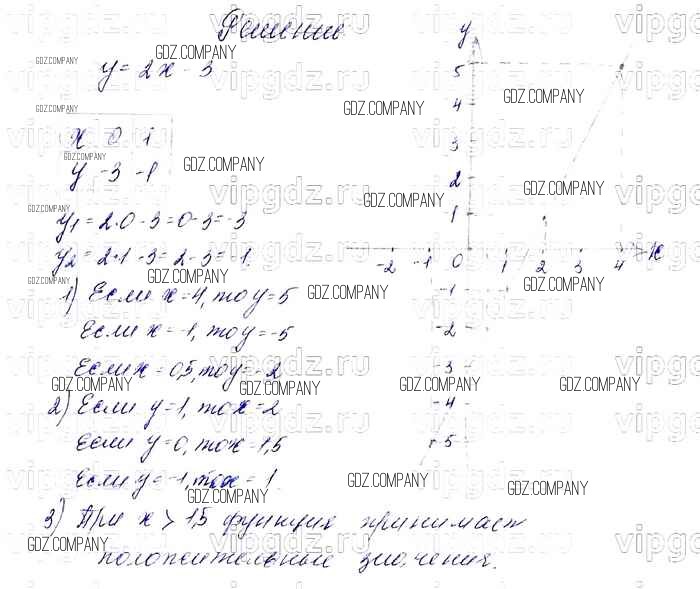 Решение
y = 2x - 3
x 0 1
y -3 -1
y₁ = 2·0 - 3 = 0 - 3 = -3
y₂ = 2·1 - 3 = 2 - 3 = -1.
1) Если x = 4, то y = 5
Если x = -1, то y = -5
Если x = 0,5, то y = -2
2) Если y = 1, то x = 2
Если y = 0, то x = 1,5
Если y = -1, то x = 1
3) При x > 1,5 функция принимает
положительные значения.
y
5
4
3
2
1
-2 -1 0 1 2 3 4 x
-1
-2
-3
-4
-5
GDZ.COMPANY
vipgdz.ru